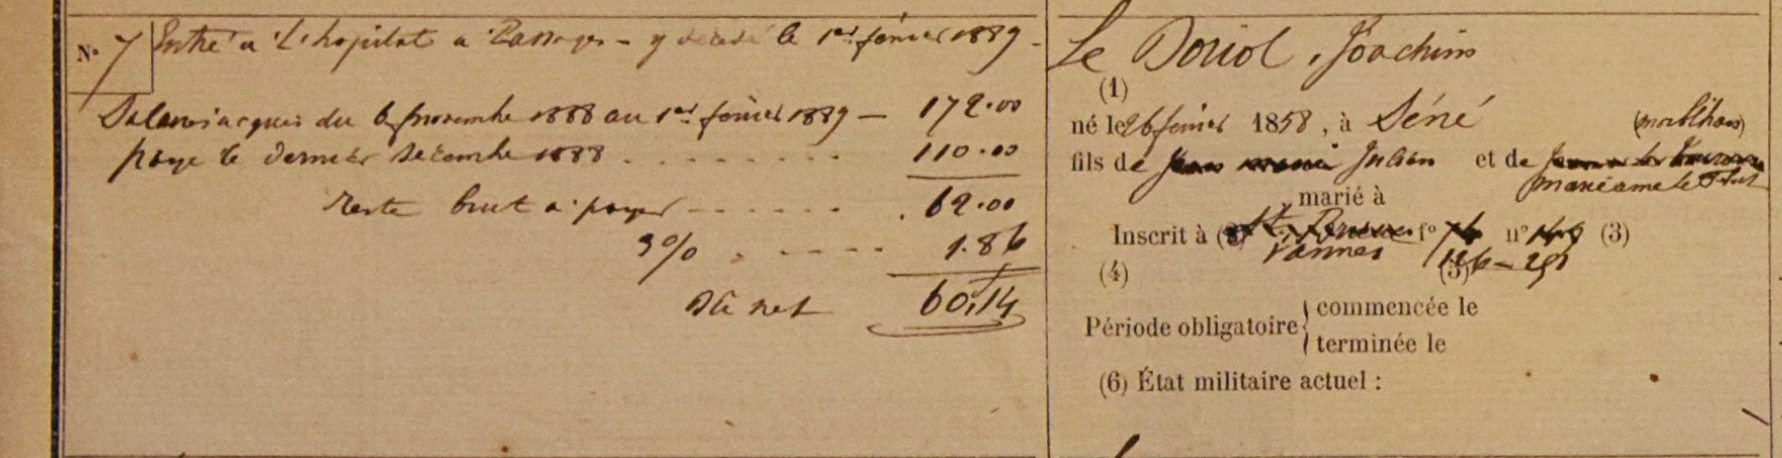 N° 7 Entré a L'hopital a Passages - y décédé le 1er février 1889 -
Salaires acquis du 6 novembre 1888 au 1er février 1889 - 172.00
paye le dernier décembre 1888 . . . . . . . . 110.00
reste brut a payer - - . . . . . 62.00
3% . . - - - - 1.86
Dû net 60,14
Le Doriol, Joachim
(1)
né le 26 février 1858, à Séné (Morbihan)
fils de Jean Marie Julien et de
marianne le
marié à
Inscrit à (2) f° 76 n° 149 (3)
Vannes 126 - 251
(4) (5)
Période obligatoire { commencée le
terminée le
(6) État militaire actuel :